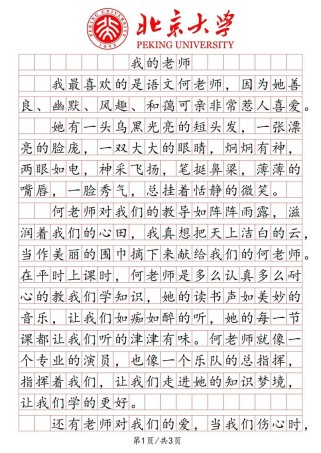 北京大学
PEKING UNIVERSITY
我的老师
我最喜欢的是语文何老师，因为她善
良、幽默、风趣、和蔼可亲非常惹人喜爱。
她有一头乌黑光亮的短头发，一张漂
亮的脸庞，一双大大的眼睛，炯炯有神，
两眼如电，神采飞扬，笔挺鼻梁，薄薄的
嘴唇，一脸秀气，总挂着恬静的微笑。
何老师对我们的教导如阵阵雨露，滋
润着我们的心田，我真想把天上洁白的云，
当作美丽的围巾摘下来献给我们的何老师。
在平时上课时，何老师是多么认真多么耐
心的教我们学知识，她的读书声如美妙的
音乐，让我们如痴如醉的听，她的每一节
课都让我们听的津津有味。何老师就像一
个专业的演员，也像一个乐队的总指挥，
指挥着我们，让我们走进她的知识梦境，
让我们学的更好。
还有老师对我们的爱，当我们伤心时，
第1页/共3页